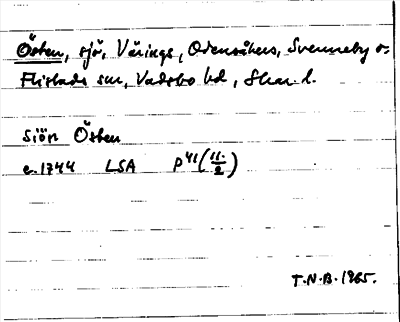 Östen, sjö, Värings, Odensåkers, Svenneby o.
Flistads snr, Vadsbo hd, Skar. l.
Siön Östen
c. 1744 LSA P 41 (11/2)
T.N.B. 1965.